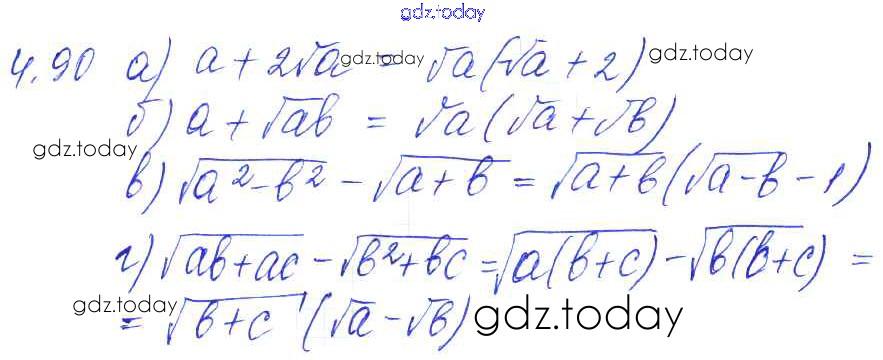 gdz.today
4.90 а) a + 2√a = √a(√a + 2)
gdz.today gdz.today
б) a + √ab = √a(√a + √b)
gdz.today
в) √a² - b² - √a + b = √a + b(√a - b - 1)
г) √ab + ac - √b² + bc = √a(b + c) - √b(b + c) =
gdz.today
= √b + c (√a - √b)
gdz.today